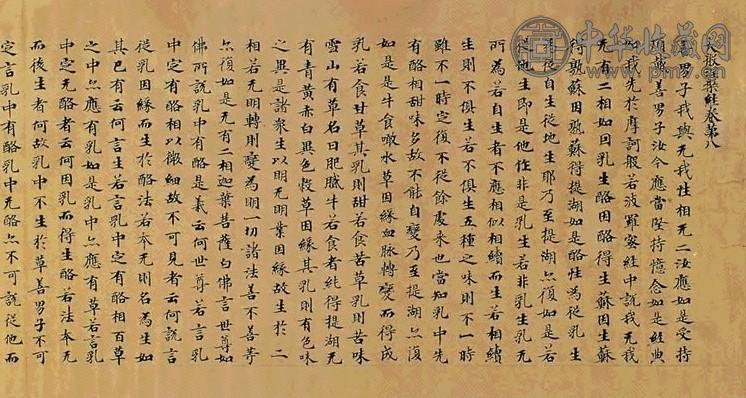 大般涅槃經卷第八
善男子我與无我性相无二汝應如是受持
頂戴善男子汝今應當堅持憶念如是經典
如我先於摩訶般若波羅蜜經中說我无我
无有二相如因乳生酪因酪得生蘇因生蘇
得熟蘇因熟蘇得提湖如是酪性為從乳生
為從自生從他生耶乃至提湖亦復如是若
從他生即是他作非是乳生若非乳生乳无
所為若自生者不應相似相續而生若相續
生則不俱生若不俱生五種之味則不一時
雖不一時定復不從餘處來也當知乳中先
有酪相甜味多故不能自變乃至提湖亦復
如是是牛食噉水草因緣血脉轉變而得成
乳若食甘草其乳則甜若食苦草乳則苦味
雪山有草名曰肥膩牛若食者純得提湖无
有青黃赤白黑色穀草因緣其乳則有色味
之異是諸衆生以明无明業因緣故生於二
相若无明轉則變為明一切諸法善不善等
亦復如是无有二相迦葉菩薩白佛言世尊如
佛所說乳中有酪是義云何世尊若言乳
中定有酪相以微細故不可見者云何說言
從乳因緣而生於酪法若本无則名為生如
其已有云何言生若言乳中定有酪相百草
之中亦應有乳如是乳中亦應有草若言乳
中定无酪者云何因乳而得生酪若法本无
而後生者何故乳中不生於草善男子不可
定言乳中有酪乳中无酪亦不可說從他而
中华收藏网
www.pmw.cn